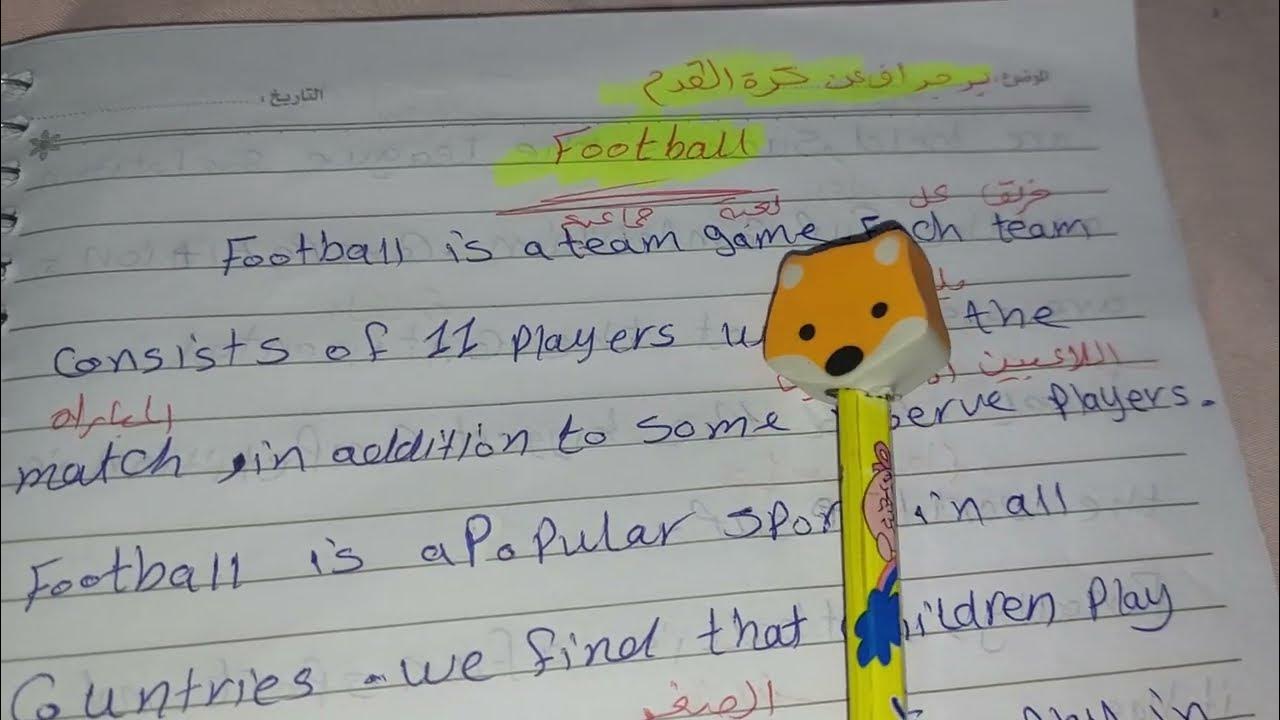 الموضوع: برجراف عن كرة القدم
التاريخ:
Football
لعبة جماعية
كل فريق
Football is a team game Each team
consists of 11 players the
اللاعبين
المباراة
match , in addition to some players.
Football is a Popular spor in all
Countries . we find that children Play
الصغ
in